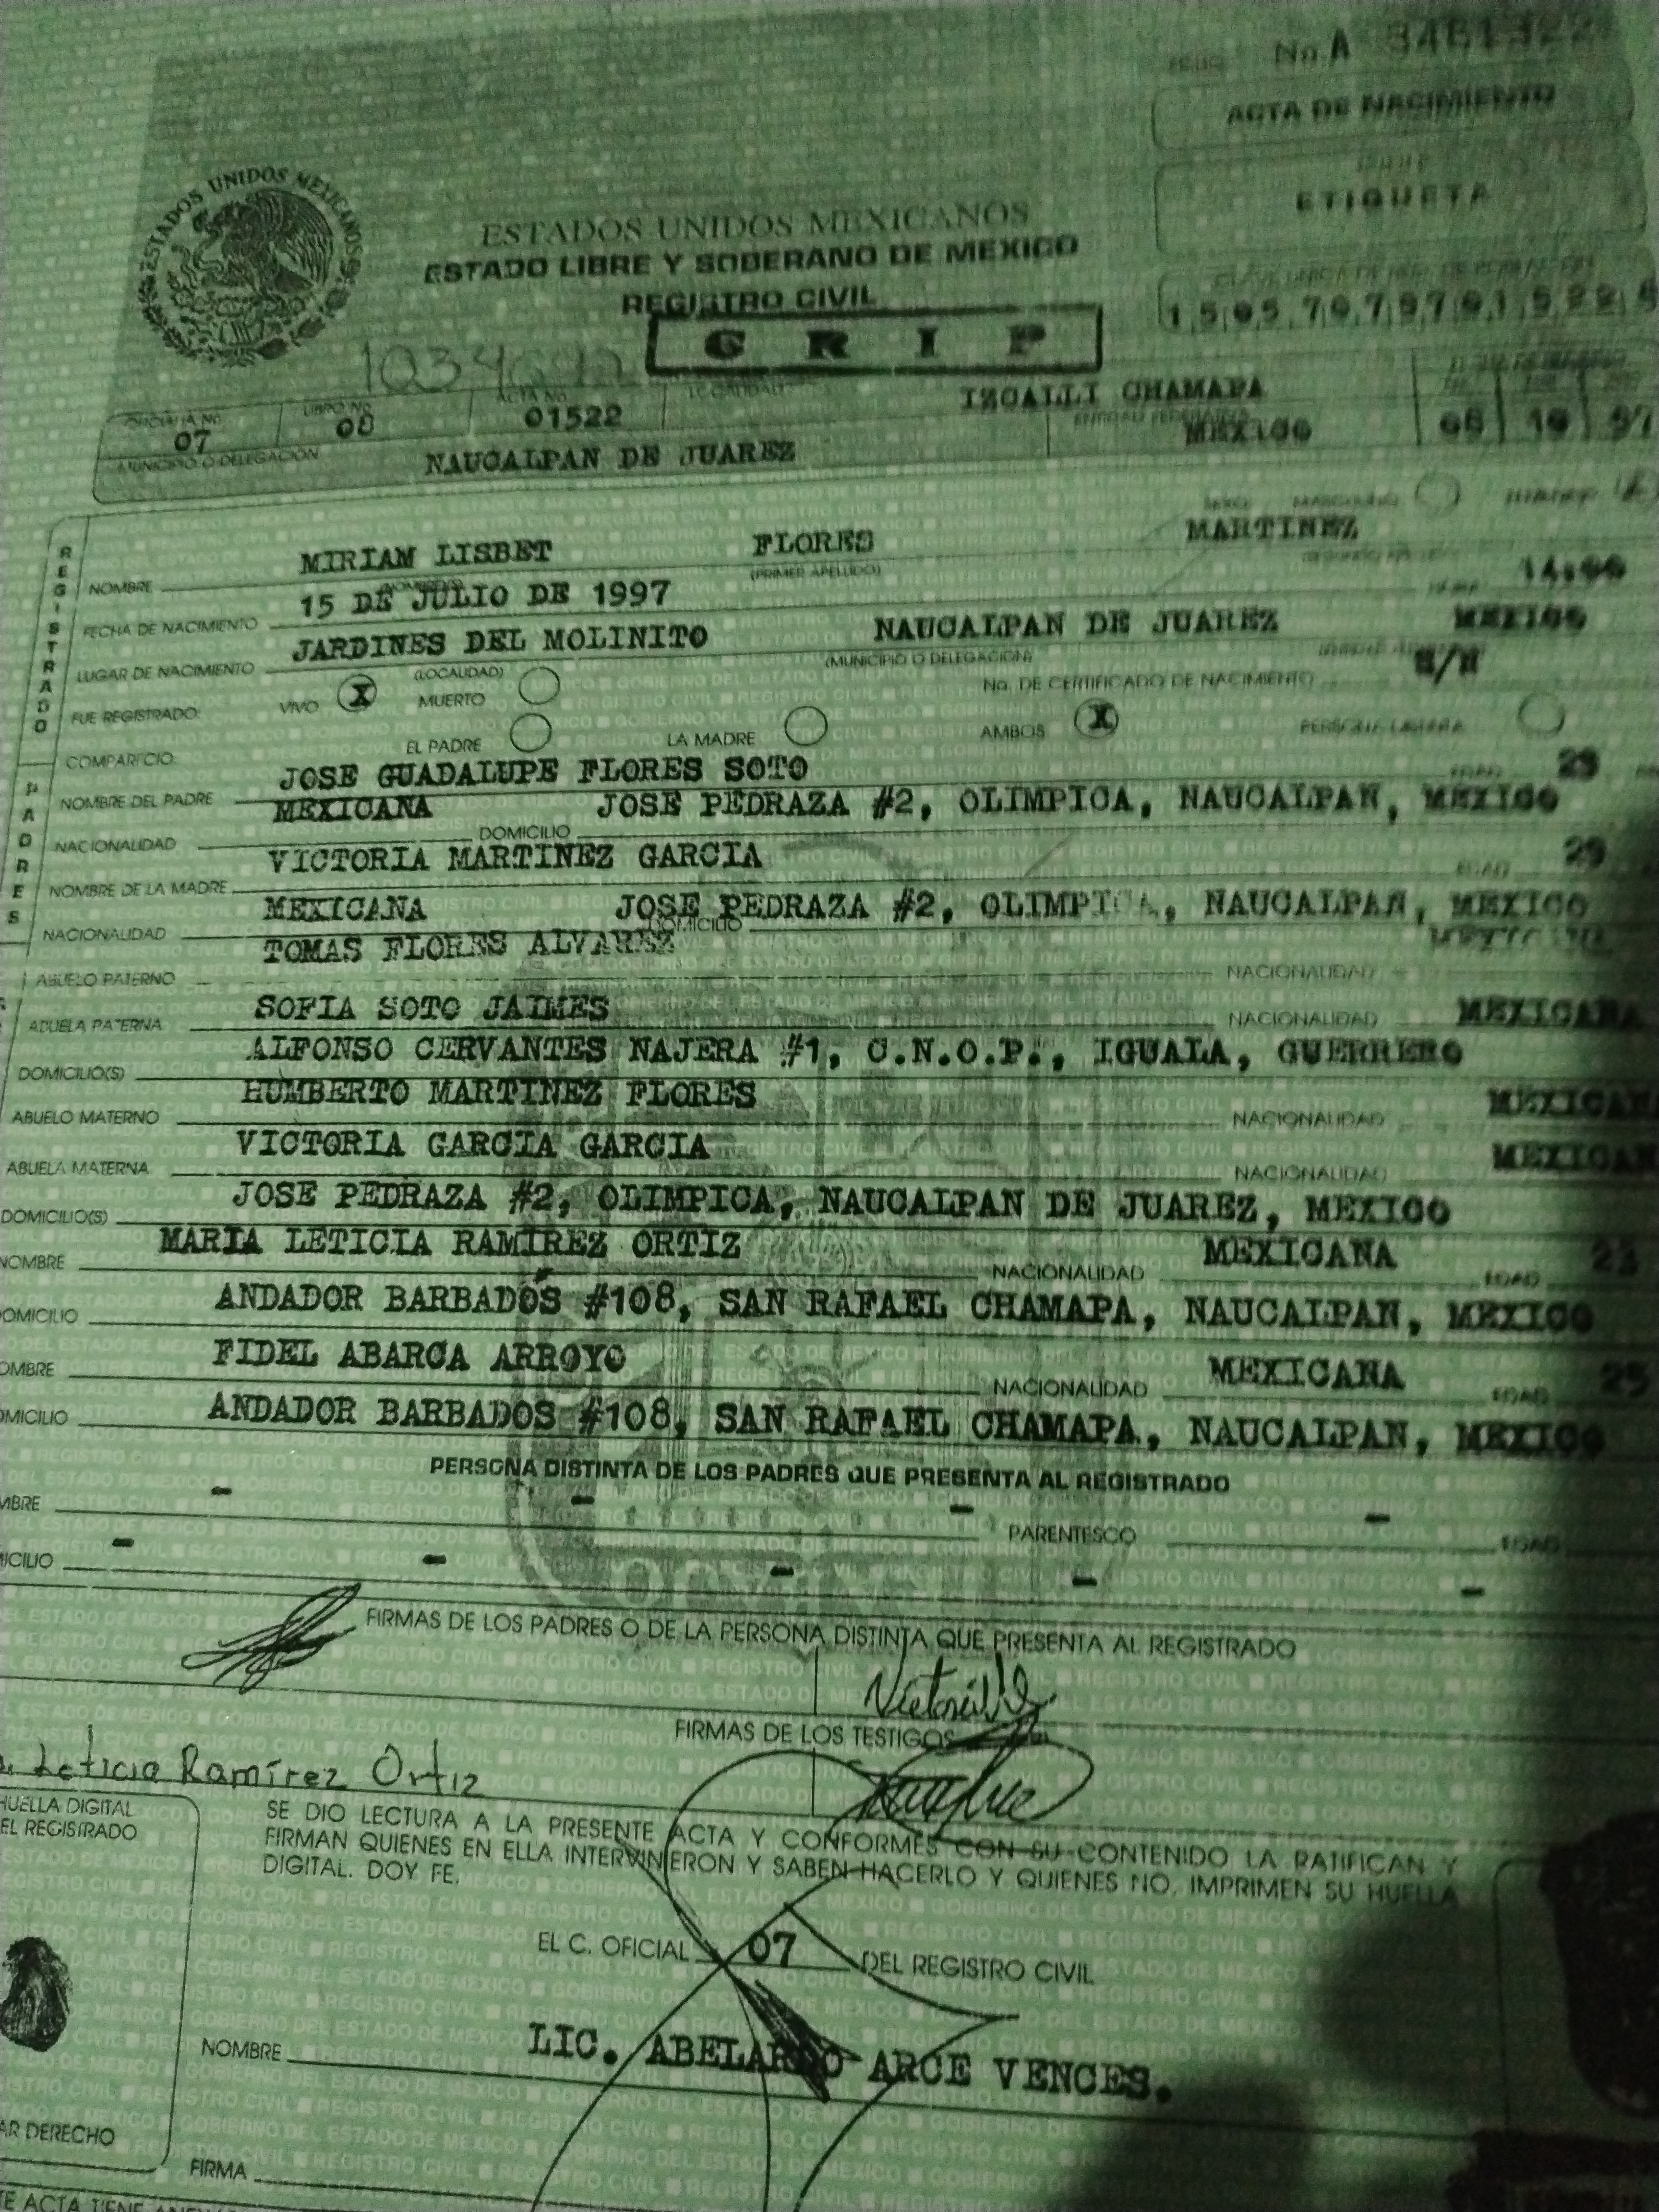 No. A 3461322
ACTA DE NACIMIENTO
ETIQUETA
ESTADOS UNIDOS MEXICANOS
ESTADOS UNIDOS MEXICANOS
ESTADO LIBRE Y SOBERANO DE MEXICO
REGISTRO CIVIL
CLAVE UNICA DE REG. DE POBLACION
G R I P
OFICIALIA No. LIBRO No. ACTA No. LOCALIDAD IZCALLI CHAMAPA
07 08 01522
MUNICIPIO O DELEGACION NAUCALPAN DE JUAREZ ENTIDAD FEDERATIVA MEXICO
REGISTRADO
MIRIAM LISBET FLORES MARTINEZ
NOMBRE (PRIMER APELLIDO)
15 DE JULIO DE 1997
FECHA DE NACIMIENTO
JARDINES DEL MOLINITO NAUCALPAN DE JUAREZ MEXICO
LUGAR DE NACIMIENTO (LOCALIDAD) (MUNICIPIO O DELEGACION)
FUE REGISTRADO: VIVO X MUERTO No. DE CERTIFICADO DE NACIMIENTO S/N
COMPARECIO: EL PADRE LA MADRE AMBOS X
PADRES
NOMBRE DEL PADRE JOSE GUADALUPE FLORES SOTO
NACIONALIDAD MEXICANA DOMICILIO JOSE PEDRAZA #2, OLIMPICA, NAUCALPAN, MEXICO
NOMBRE DE LA MADRE VICTORIA MARTINEZ GARCIA
NACIONALIDAD MEXICANA DOMICILIO JOSE PEDRAZA #2, OLIMPICA, NAUCALPAN, MEXICO
ABUELO PATERNO TOMAS FLORES ALVAREZ NACIONALIDAD MEXICANA
ABUELA PATERNA SOFIA SOTO JAIMES NACIONALIDAD MEXICANA
DOMICILIO(S) ALFONSO CERVANTES NAJERA #1, C.N.O.P., IGUALA, GUERRERO
ABUELO MATERNO HUMBERTO MARTINEZ FLORES NACIONALIDAD MEXICAN
ABUELA MATERNA VICTORIA GARCIA GARCIA NACIONALIDAD MEXICAN
DOMICILIO(S) JOSE PEDRAZA #2, OLIMPICA, NAUCALPAN DE JUAREZ, MEXICO
NOMBRE MARIA LETICIA RAMIREZ ORTIZ NACIONALIDAD MEXICANA EDAD
DOMICILIO ANDADOR BARBADOS #108, SAN RAFAEL CHAMAPA, NAUCALPAN, MEXICO
OMBRE FIDEL ABARCA ARROYO NACIONALIDAD MEXICANA EDAD 25
OMICILIO ANDADOR BARBADOS #108, SAN RAFAEL CHAMAPA, NAUCALPAN, MEXICO
PERSONA DISTINTA DE LOS PADRES QUE PRESENTA AL REGISTRADO
MBRE - - - PARENTESCO - EDAD
ICILIO - - - - -
FIRMAS DE LOS PADRES O DE LA PERSONA DISTINTA QUE PRESENTA AL REGISTRADO
FIRMAS DE LOS TESTIGOS
Leticia Ramírez Ortiz
HUELLA DIGITAL
EL REGISTRADO
SE DIO LECTURA A LA PRESENTE ACTA Y CONFORMES CON SU CONTENIDO LA RATIFICAN Y
FIRMAN QUIENES EN ELLA INTERVINIERON Y SABEN HACERLO Y QUIENES NO, IMPRIMEN SU HUELLA
DIGITAL. DOY FE.
EL C. OFICIAL 07 DEL REGISTRO CIVIL
NOMBRE LIC. ABELARDO ARCE VENCES.
AR DERECHO
FIRMA